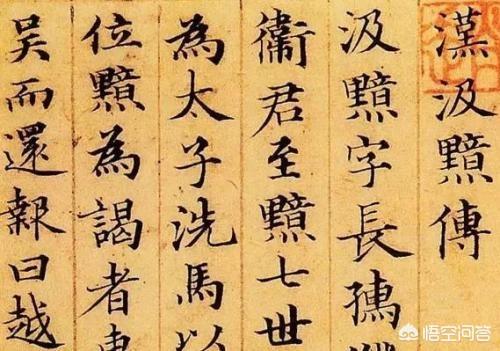 漢汲黯傳
汲黯字長孺
衛君至黯七世
為太子洗馬以
位黯為謁者東
吳而還報曰越
悟空问答